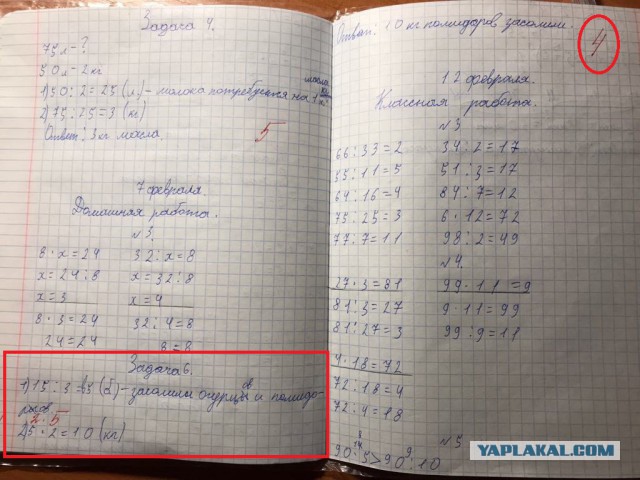 Задача 4.
75 л - ?
50 л - 2 кг
1) 50 : 2 = 25 (л) - молока потребуется на 1 кг масла
2) 75 : 25 = 3 (кг)
Ответ: 3 кг масла.
5
7 февраля.
Домашная работа.
№3.
8 · x = 24 32 : x = 8
x = 24 : 8 x = 32 : 8
x = 3 x = 4
8 · 3 = 24 32 : 4 = 8
24 = 24 8 = 8
Задача 6.
1) 15 : 3 = 5 (б) - засолили огурцов и помидо-
ров
2 · 5
2) 5 · 2 = 10 (кг)
Ответ: 10 кг помидоров засолили.
4
12 февраля.
Классная работа.
№3
66 : 33 = 2 34 : 2 = 17
55 : 11 = 5 51 : 3 = 17
64 : 16 = 4 84 : 7 = 12
75 : 25 = 3 6 · 12 = 72
77 : 7 = 11 98 : 2 = 49
№4.
27 · 3 = 81 99 : 11 = 9
81 : 3 = 27 9 · 11 = 99
81 : 27 = 3 99 : 9 = 11
4 · 18 = 72
72 : 18 = 4
72 : 4 = 18
№5
90 : 5 > 90 : 10
YAPLAKAL.COM